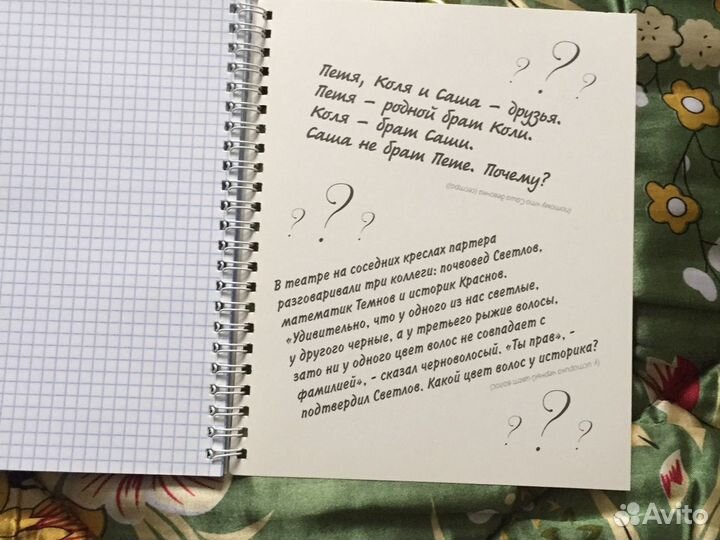 ? ? ?
Петя, Коля и Саша – друзья.
Петя – родной брат Коли.
Коля – брат Саши.
Саша не брат Пете. Почему?
(потому что Саша девочка (сестра))
? ? ?
В театре на соседних креслах партера
разговаривали три коллеги: почвовед Светлов,
математик Темнов и историк Краснов.
«Удивительно, что у одного из нас светлые,
у другого черные, а у третьего рыжие волосы,
зато ни у одного цвет волос не совпадает с
фамилией», - сказал черноволосый. «Ты прав», -
подтвердил Светлов. Какой цвет волос у историка?
(у историка черный цвет волос)
? ? ?
Avito